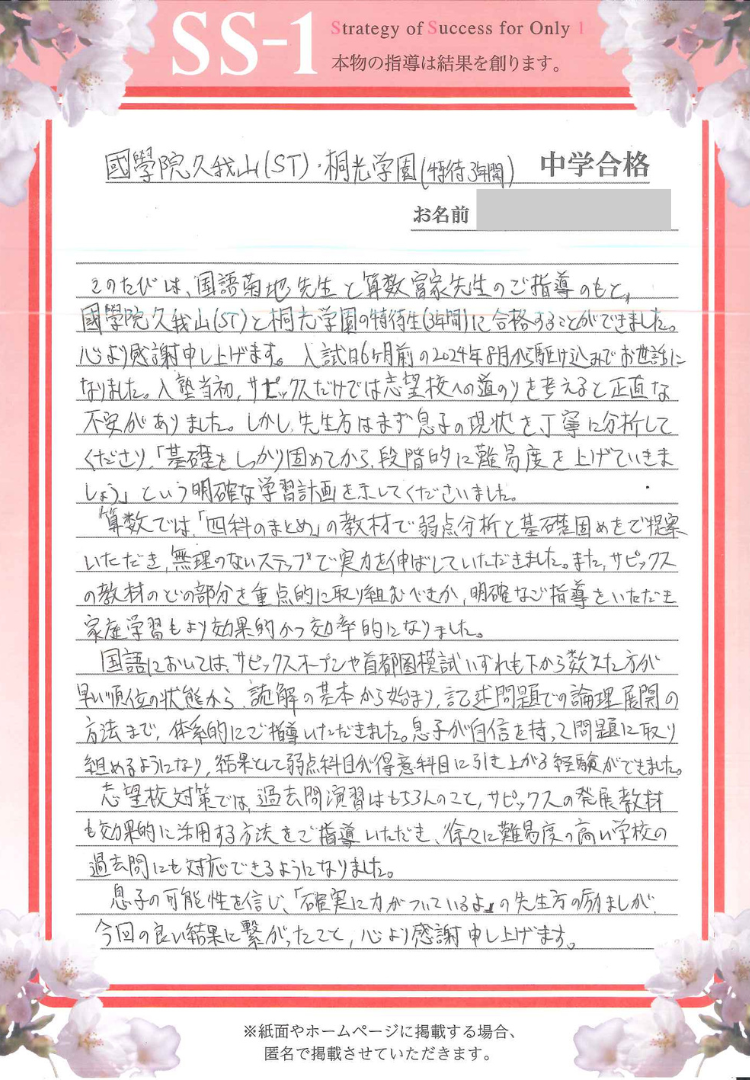 SS-1
Strategy of Success for Only 1
本物の指導は結果を創ります。
國學院久我山(ST)・桐光学園(特待3年間) 中学合格
お名前
このたびは、国語菊地先生と算数宮家先生のご指導のもと、
國學院久我山(ST)と桐光学園の特待生(3年間)に合格することができました。
心より感謝申し上げます。入試日6ヶ月前の2024年8月から駆け込みでお世話に
なりました。入塾当初、サピックスだけでは志望校への道のりを考えると正直な
不安がありました。しかし、先生方はまず息子の現状を丁寧に分析して
くださり、「基礎をしっかり固めてから、段階的に難易度を上げていきま
しょう」という明確な学習計画を示してくださいました。
算数では、「四科のまとめ」の教材で弱点分析と基礎固めをご提案
いただき、無理のないステップで実力を伸ばしていただきました。また、サピックス
の教材のどの部分を重点的に取り組むべきか、明確なご指導をいただき
家庭学習もより効果的かつ効率的になりました。
国語においては、サピックスオープンや首都圏模試いずれも下から数えた方が
早い順位の状態から、読解の基本から始まり、記述問題での論理展開の
方法まで、体系的にご指導いただきました。息子が自信を持って問題に取り
組めるようになり、結果として弱点科目が得意科目に引き上がる経験ができました。
志望校対策では、過去問演習はもちろんのこと、サピックスの発展教材
も効果的に活用する方法をご指導いただき、徐々に難易度の高い学校の
過去問にも対応できるようになりました。
息子の可能性を信じ、「確実に力がついているよ」の先生方の励ましが、
今回の良い結果に繋がったこと、心より感謝申し上げます。
※紙面やホームページに掲載する場合、
匿名で掲載させていただきます。